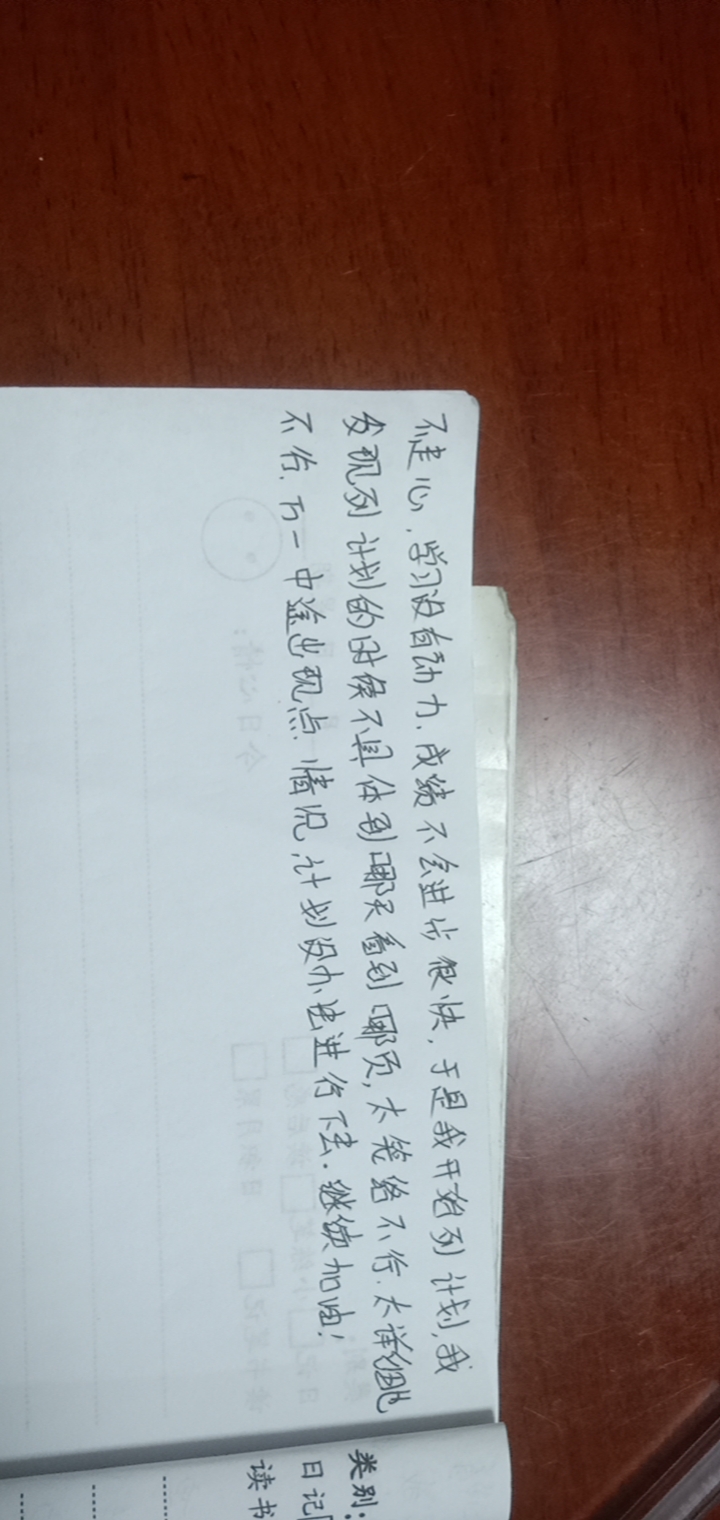 不走心,学习没有动力,成绩不会进步很快,于是我开始列计划,我
发现列计划的时候不具体到哪天看到哪页,太笼络不行.太详细也
不行.万一中途出现点情况,计划没办法进行下去.继续加油!
类别:
日记
读书